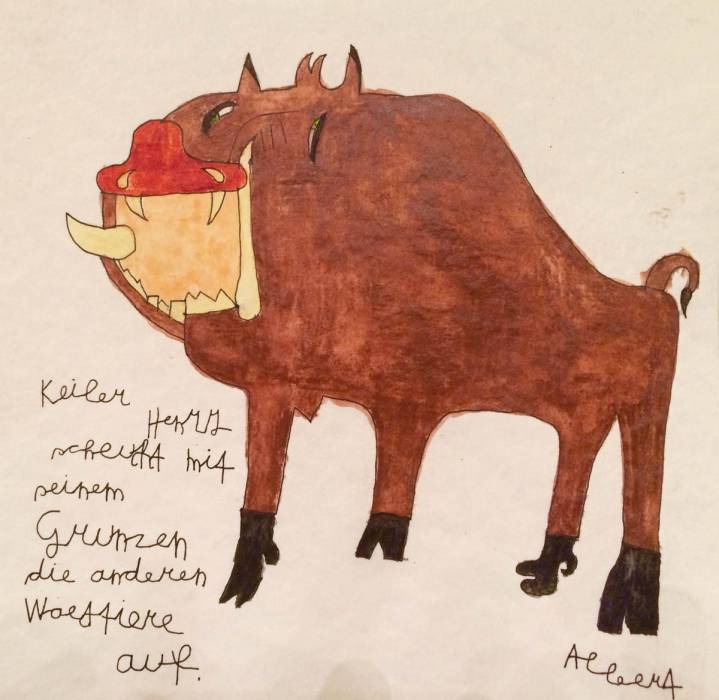 Keiler
Henry
scheucht mit
seinem
Grunzen
die anderen
Waldtiere
auf.
Albert